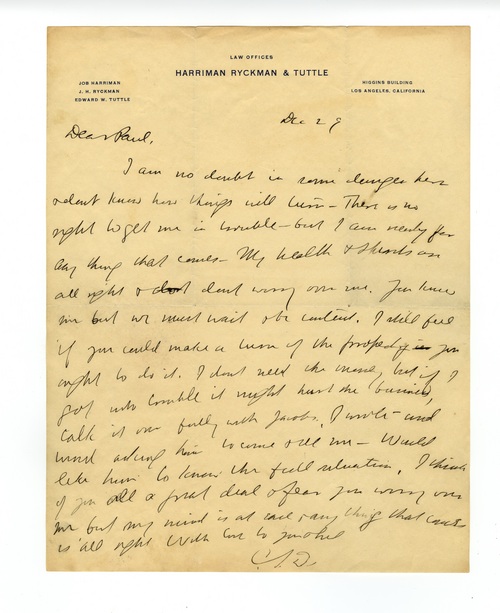 LAW OFFICES
HARRIMAN RYCKMAN & TUTTLE
JOB HARRIMAN
J. H. RYCKMAN
EDWARD W. TUTTLE
HIGGINS BUILDING
LOS ANGELES, CALIFORNIA
Dec 29
Dear Paul,
I am no doubt in some danger here
& dont know how things will turn – There is no
right to get me in trouble – but I am ready for
any thing that comes – My health & spirits are
all right & dont worry over me. You know
me but we must wait & be content. I still feel
if you could make a turn of the property you
ought to do it. I dont need the money but if I
got into trouble it might hurt the business,
talk it over fully with Jacobs, I wrote and
asking him to come & see me – Would
like him to know the full situation, I think
if you all a great deal & fear you worry over
me but my mind is at ease & any thing that comes
is all right With love to you all
C. S. D.